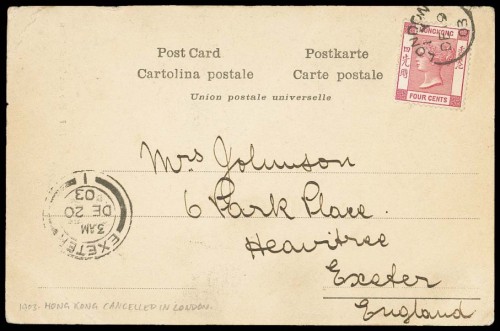 Post Card Postkarte
Cartolina postale Carte postale
Union postale universelle
HONG KONG
FOUR CENTS
LONDON
03
Mrs Johnson
6 Park Place
Heavitree
Exeter
England
EXETER
3AM
DE 20
03
1
1903. HONG KONG CANCELLED IN LONDON.